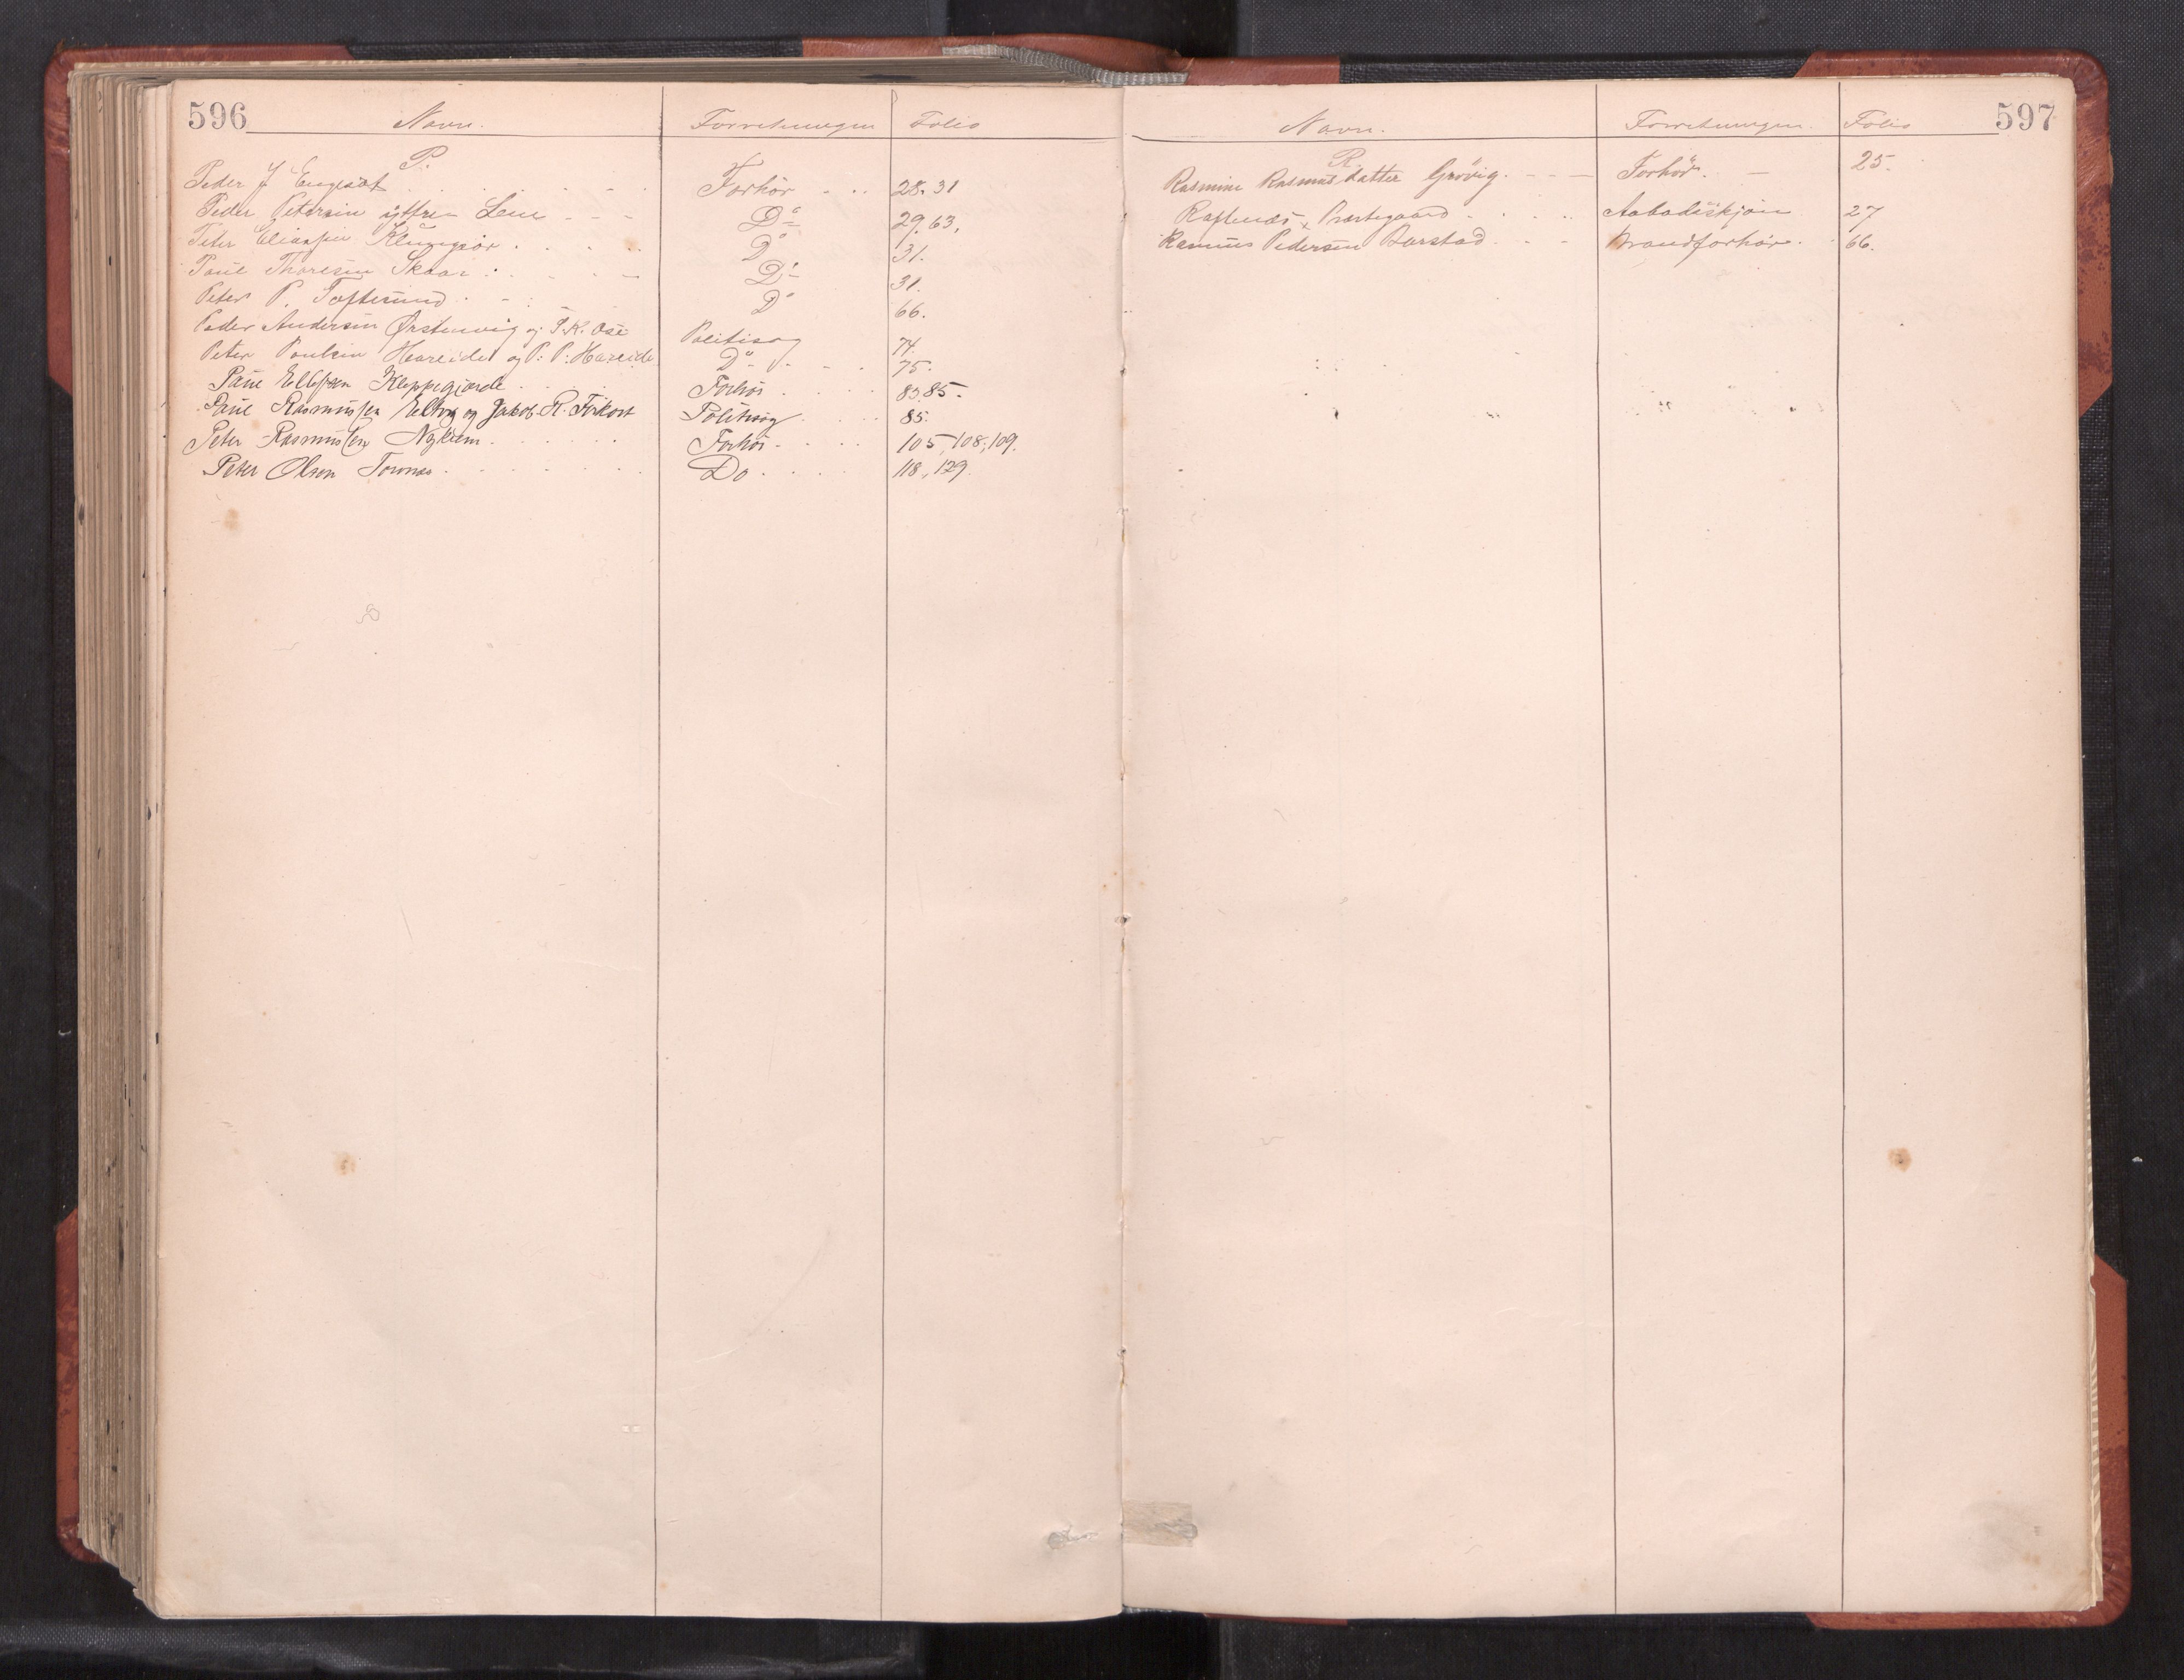 596 Navn. Forretningen Folio
P.
Peder J Engesæt Forhör 28. 31
Peder Petersen ytfre Lem Do 29. 63.
Peter Eliassen Klungsör Do 31.
Paul Thoresen Skaar Do 31.
Peter P. Toftesund Do 66.
Peder Andersen Ørstenvig og P. K. Ose Politisag 74.
Peter Poulsen Hareide og P. P. Hareide Do 75.
Paul Ellefsen Kleppegjærde Forhör 83. 85.
Paul Rasmussen og Jakob R. Politisag 85.
Peter Rasmussen Forhör 105, 108, 109.
Peter Olsen Do 118, 129
Navn. Forretningen. Folio 597
R.
Rasmine Rasmusdatter Grövig Forhör. 25.
Præstegaard Aabodskjön 27
Rasmus Pedersen Barstad Brandforhör. 66.